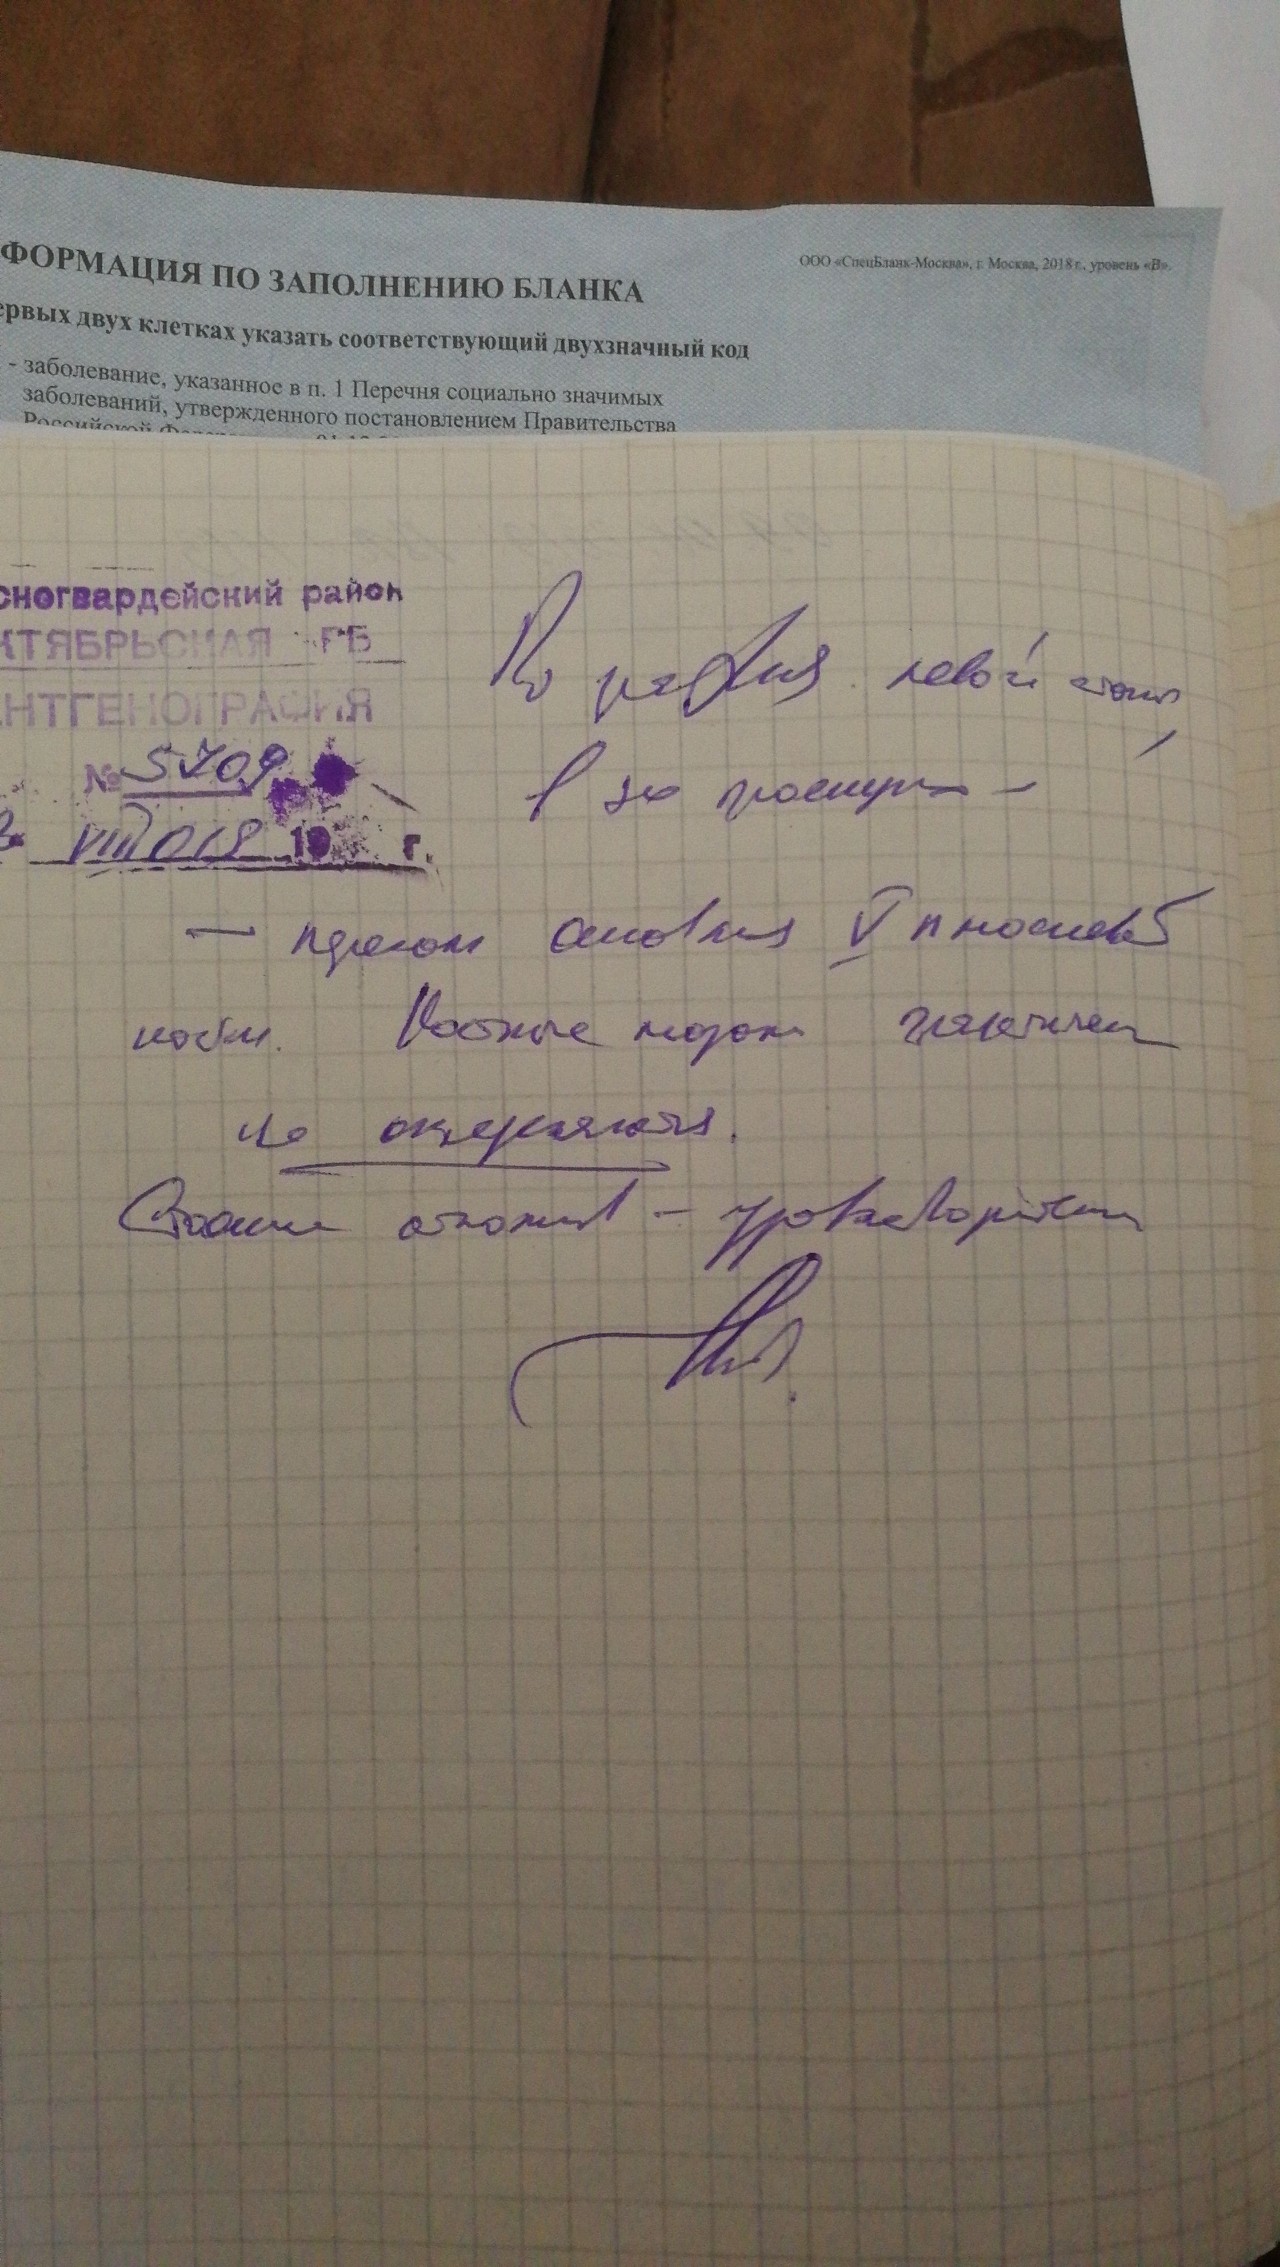 ФОРМАЦИЯ ПО ЗАПОЛНЕНИЮ БЛАНКА
ООО «СпецБланк-Москва», г. Москва, 2018 г., уровень «В».
ервых двух клетках указать соответствующий двухзначный код
- заболевание, указанное в п. 1 Перечня социально значимых
заболеваний, утвержденного постановлением Правительства
Российской
сногвардейский район
КТЯБРЬСКАЯ РБ
НТГЕНОГРАФИЯ
№ 5709
VIII 018 19 г.
На левой стопы
в 2х проекциях -
- перелом основания V плюсневой
кости. Костные отломки практически
не определяются.
Стояние отломков - удовлетворительн